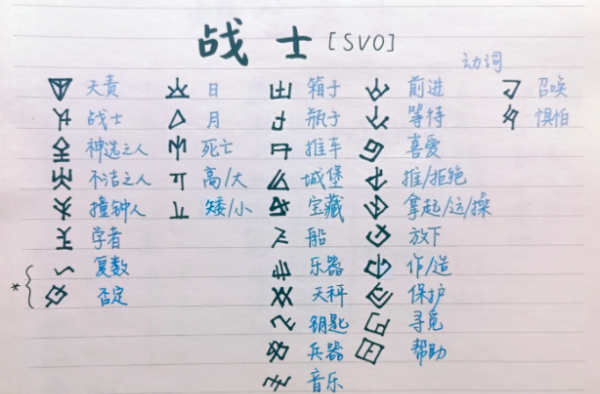 战士 [SVO]
动词
天责 日 箱子 前进 召唤
战士 月 瓶子 等待 惧怕
神选之人 死亡 推车 喜爱
不洁之人 高/大 城堡 推/拒绝
撞钟人 矮/小 宝藏 拿起/运/操
学者 船 放下
复数 乐器 作/造
* 否定 天秤 保护
钥匙 寻觅
兵器 帮助
音乐